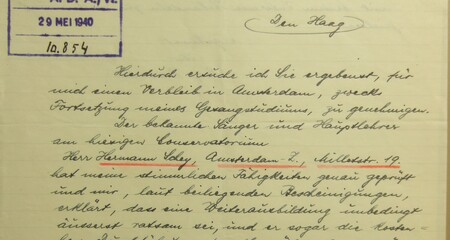 29 MEI 1940
10.854
Den Haag
Hierdurch ersuche ich Sie ergebenst, für
mich einen Verbleib in Amsterdam, zwecks
Fortsetzung meines Gesangstudiums, zu genehmigen.
Der bekannte Sänger und Hauptlehrer
am hiesigen Conservatorium
Herr Hermann Schey, Amsterdam-Z., Milletstr. 19.
hat meine stimmlichen Fähigkeiten genau geprüft
und mir, laut beiliegenden Bescheinigungen,
erklärt, dass eine Weiterausbildung unbedingt
äusserst ratsam sei, und er sogar die Kosten-